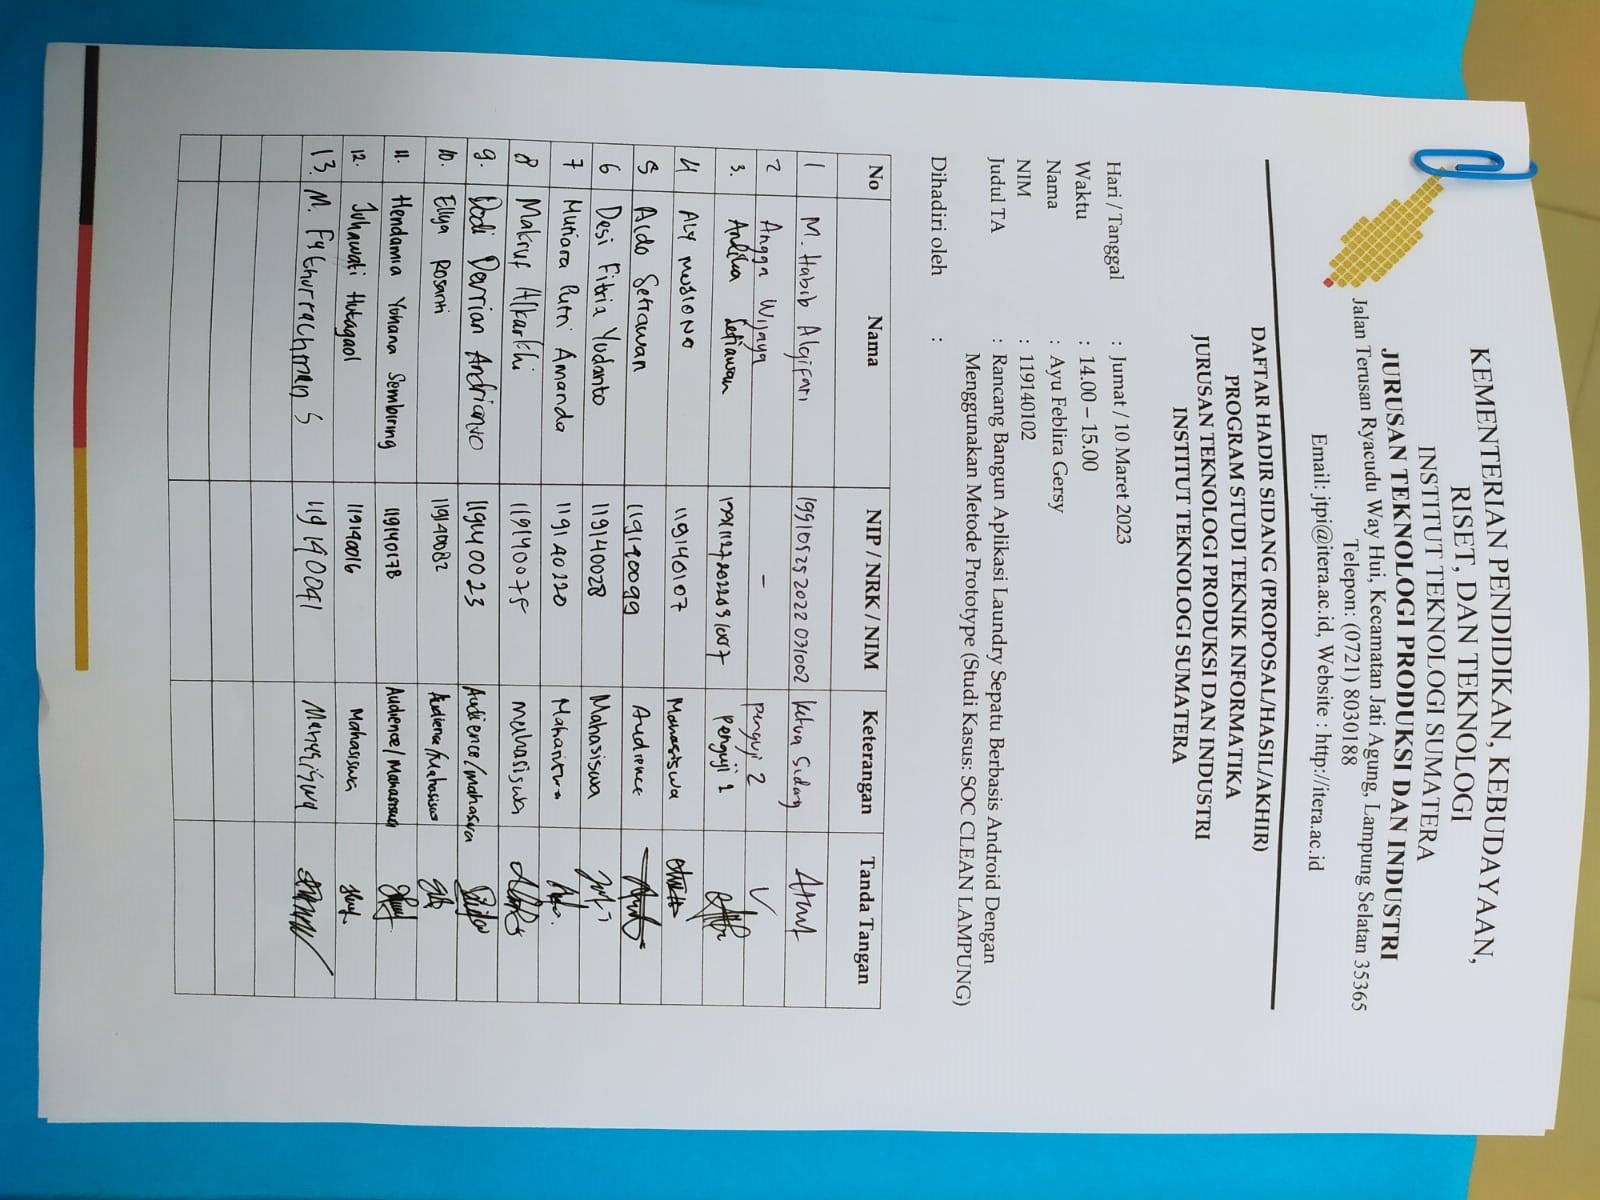 KEMENTERIAN PENDIDIKAN, KEBUDAYAAN,
RISET, DAN TEKNOLOGI
INSTITUT TEKNOLOGI SUMATERA
JURUSAN TEKNOLOGI PRODUKSI DAN INDUSTRI
Jalan Terusan Ryacudu Way Hui, Kecamatan Jati Agung, Lampung Selatan 35365
Telepon: (0721) 8030188
Email: jtpi@itera.ac.id, Website : http://itera.ac.id
DAFTAR HADIR SIDANG (PROPOSAL/HASIL/AKHIR)
PROGRAM STUDI TEKNIK INFORMATIKA
JURUSAN TEKNOLOGI PRODUKSI DAN INDUSTRI
INSTITUT TEKNOLOGI SUMATERA
Hari / Tanggal : Jumat / 10 Maret 2023
Waktu : 14.00 – 15.00
Nama : Ayu Feblira Gersy
NIM : 119140102
Judul TA : Rancang Bangun Aplikasi Laundry Sepatu Berbasis Android Dengan
Menggunakan Metode Prototype (Studi Kasus: SOC CLEAN LAMPUNG)
Dihadiri oleh :
No Nama NIP / NRK / NIM Keterangan Tanda Tangan
1 M. Habib Algifari 199105252022031002 Ketua Sidang
2 Angga Wijaya - Penguji 2
3. Andika Setiawan Penguji 1
4 Aly Musiono 119140107 Mahasiswa
5 Aldo Setiawan 119140099 Audience
6 Desi Fitria Yudanto 119140028 Mahasiswa
7 Mutiara Putri Amanda 119140220 Mahasiswa
8 Makruf Alkarkhi 119140075 Mahasiswa
9. Dodi Devrian Andrianto 119140023 Audience/Mahasiswa
10. Ellya Rosanti 119140082 Audience/Mahasiswa
11. Hendamia Yohana Sembiring 119140178 Audience/Mahasiswa
12. Juhawati Hutagaol 119140016 Mahasiswa
13. M. Fathurrachman S 119140041 Mahasiswa